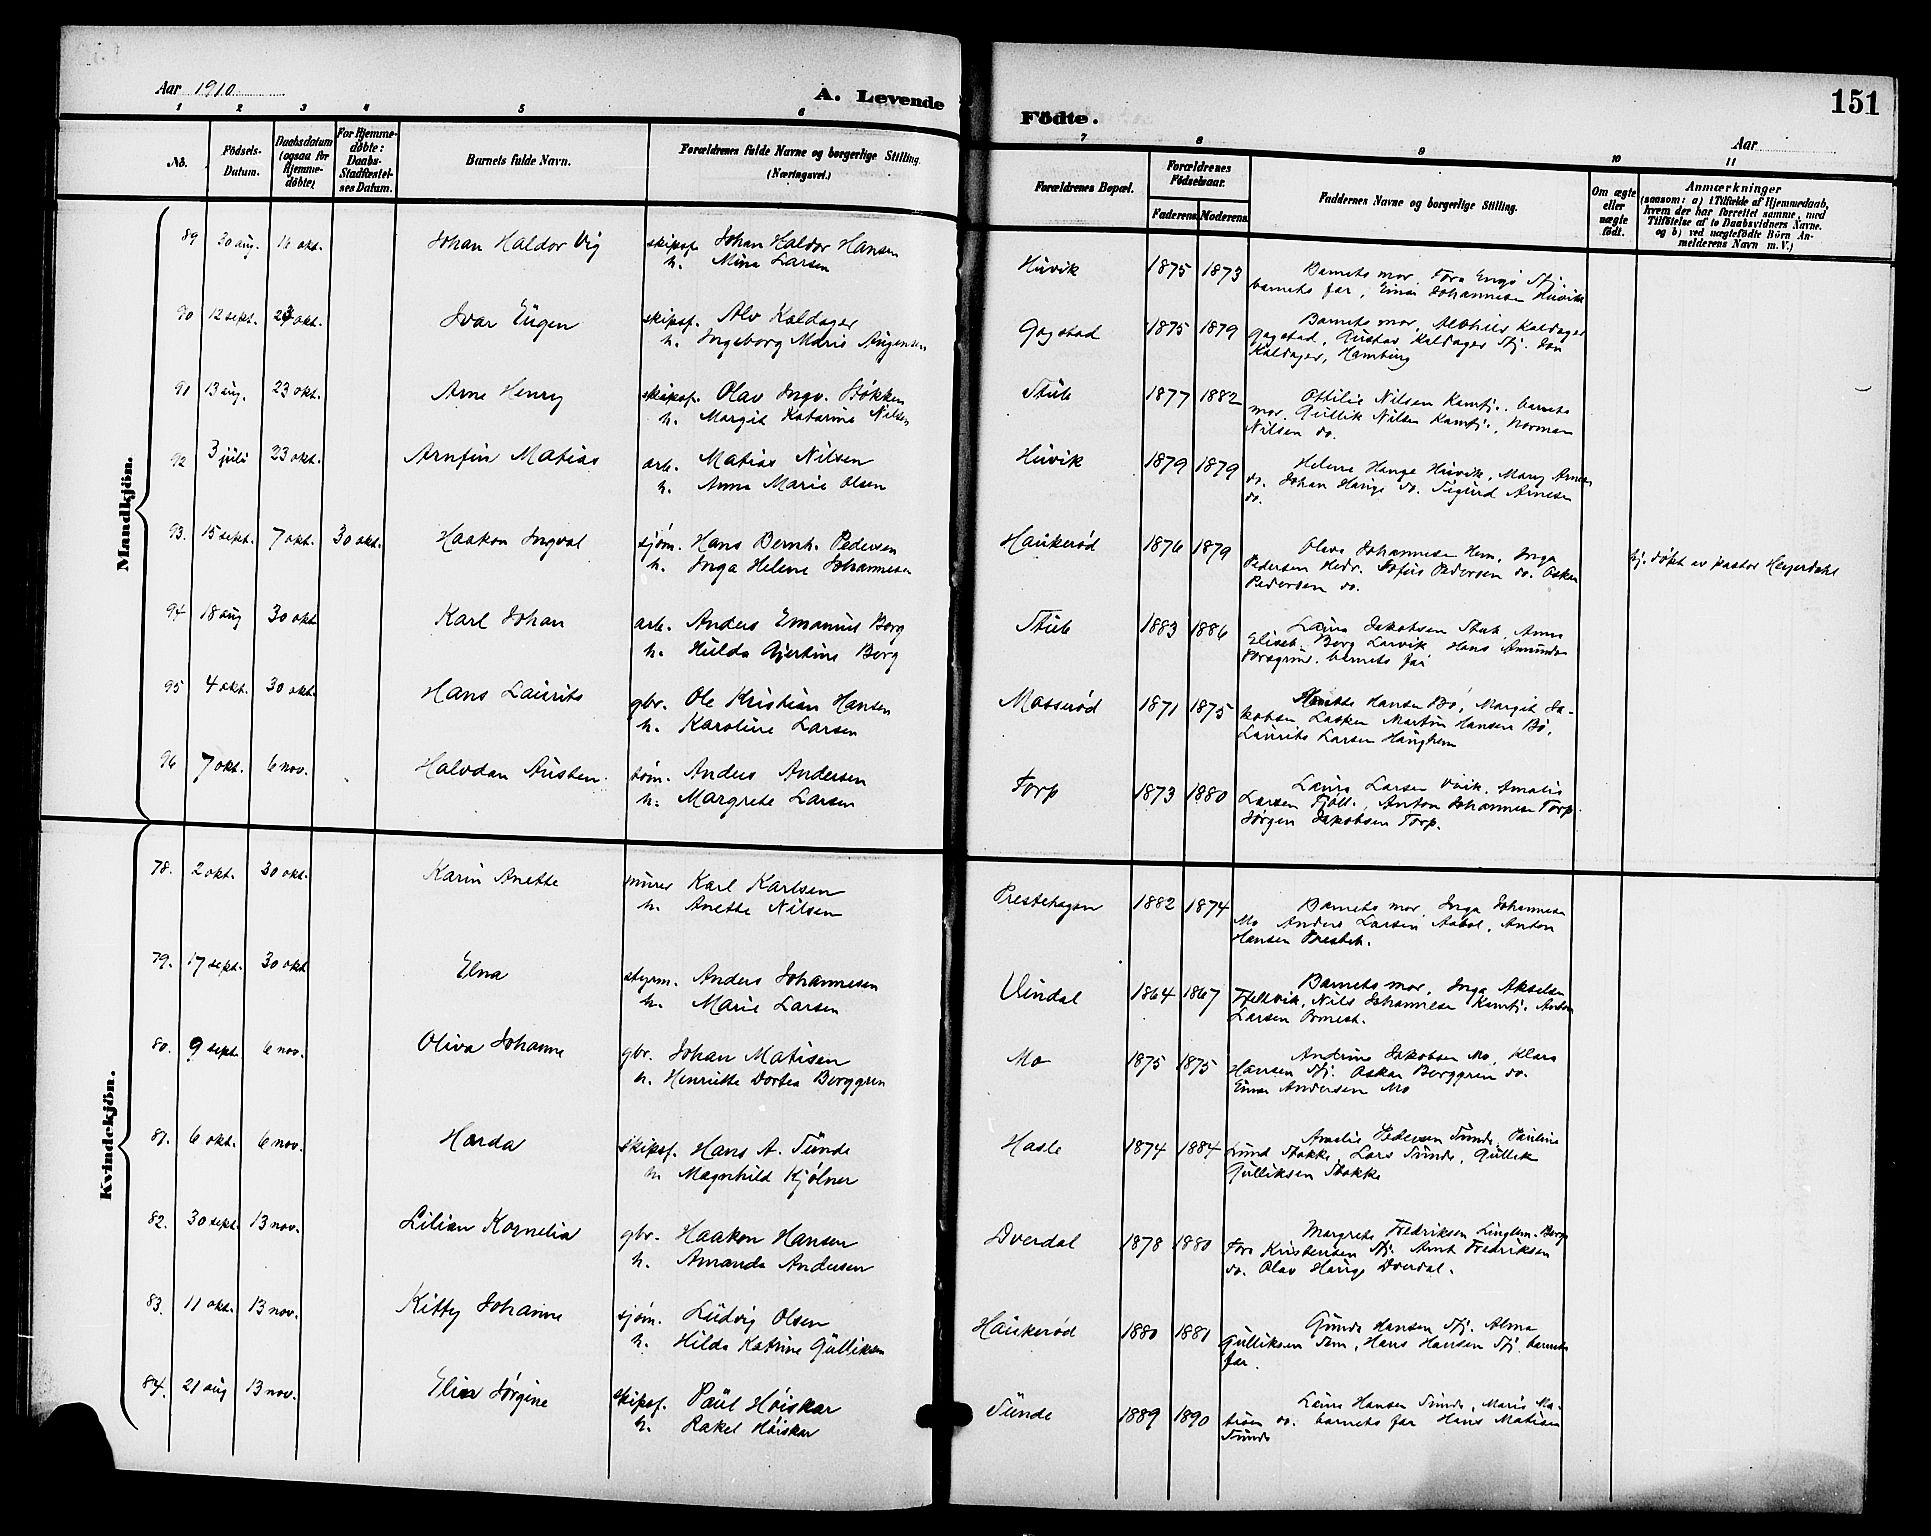 Aar 1910
A. Levende
Födte.
151
Aar
1 2 3 4 5 6 7 8 9 10 11
No.
Födsels-Datum.
Daabsdatum (ogsaa for Hjemmedöbte)
For Hjemmedöbte: Daabs-Stadfæstelses Datum.
Barnets fulde Navn.
Forældrenes fulde Navne og borgerlige Stilling. (Næringsvei.)
Forældrenes Bopæl.
Forældrenes Födselsaar.
Faderens. Moderens.
Faddernes Navne og borgerlige Stilling.
Om ægte eller uægte födt.
Anmærkninger
(saasom: a) i Tilfælde af Hjemmedaab, hvem der har forrettet samme, med Tilföielse af to Daabsvidners Navne. og b) ved uægtefödte Börn Anmelderens Navn m. V.)
Mandkjön.
89 20 aug. 16 okt. Johan Haldor Vig skipsf. Johan Haldor Hansen Huvik 1875 1873 Barnets mor, Tora Engø Stj.
h. Mina Larsen barnets far, Einar Johannesen Huvik
90 12 sept. 23 okt. Ivar Eugen skipsf. Alv Kaldager Gogstad 1875 1879 Barnets mor, Kaldager
h. Ingeborg Marie Augensen Gogstad, Gustav Kaldager Stj. Jon
Kaldager, Hamburg
91 13 aug. 23 okt. Arne Henry skipsf. Olav Ingv. Støkken Stub 1877 1882 Ottilie Nilsen Kamfj., barnets
h. Margit Katarina Nilsen mor, Gullik Nilsen Kamfj., Norman
Nilsen do.
92 3 juli 23 okt. Arnfin Matias arb. Matias Nilsen Huvik 1879 1879 Helene Hauge Huvik, Mary Arnesen
h. Anna Marie Olsen do. Johan Hauge do. Sigurd Arnesen
do.
93. 15 sept. 7 okt. 30 okt. Haakon Ingval sjøm. Hans Bernh. Pedersen Haukerød 1876 1879 Olava Johannesen Hem, Inga hj. døbt av pastor Heyerdahl
h. Inga Helene Johannesen Pedersen Hedr. Sofus Pedersen do. Oskar
Pedersen do.
94 18 aug 30 okt. Karl Johan arb. Anders Emanuel Berg Stub 1883 1886 Laura Jakobsen Stub, Anna
h. Hulda Gjertine Berg Elisab. Berg Larvik, Hans Amunds
Porsgrun. barnets far
95 4 okt. 30 okt. Hans Laurits gbr. Ole Kristian Hansen Mosserød 1871 1875 Hansen Bø, Margit Ja-
h. Karoline Larsen kobsen Lasken Martin Hansen Bø,
Laurits Larsen Haughem
96 7 okt. 6 nov. Halvdan Austen. tøm. Anders Andersen Torp 1873 1880 Laura Larsen Vivik, Amalie
h. Margrete Larsen Larsen Fjell., Anton Johannesen Torp
Jørgen Jakobsen Torp.
Kvindekjön.
78. 2 okt. 30 okt. Karin Anette murer Karl Karlsen Prestehagen 1882 1874 Barnets mor, Inga Johannesen
h. Anette Nilsen Mo Anders Larsen Aabol, Anton
Hansen Presteh.
79. 17 sept. 30 okt Elna styrm. Anders Johannesen Vindal 1864 1867 Barnets mor, Inga Akselsen
h. Marie Larsen Fjellvik, Nils Johannesen Kamfj. Anton
Larsen Ormest.
80. 9 sept. 6 nov. Oliva Johanne gbr. Johan Matisen Mo 1875 1875 Andrine Jakobsen Mo, Klara
h. Henriette Dortea Berggren Hansen Stj. Oskar Berggren do.
Einar Andersen Mo
81. 6 okt. 6 nov. Harda skipsf. Hans A. Sunde Hasle 1874 1884 Amalie Pedersen Sunde, Pauline
h. Magnhild Kjølner Lund Stokke, Lars Sunde, Gullik
Gulliksen Stokke
82. 30 sept. 13 nov. Lilian Kornelia gbr. Haakon Hansen Dverdal 1878 1880 Margrete Fredriksen Linghem-Berg
h. Amanda Andersen Tora Kristensen Stj. Arnt Fredriksen
do. Olav Hauge Dverdal.
83. 11 okt. 13 nov. Kitty Johanne sjøm. Ludvig Olsen Haukerød 1880 1881 Gunda Hansen Stj. Alma
h. Hilda Katrine Gulliksen Gulliksen Sem, Hans Hansen Stj. barnets
far.
84. 21 aug 13 nov. Elin Jørgine skipsf. Paul Høiskar Sunde 1889 1890 Laura Hansen Sunde, Marie Ma-
h. Rakel Høiskar tisen do. barnets far Hans Matisen
Sunde